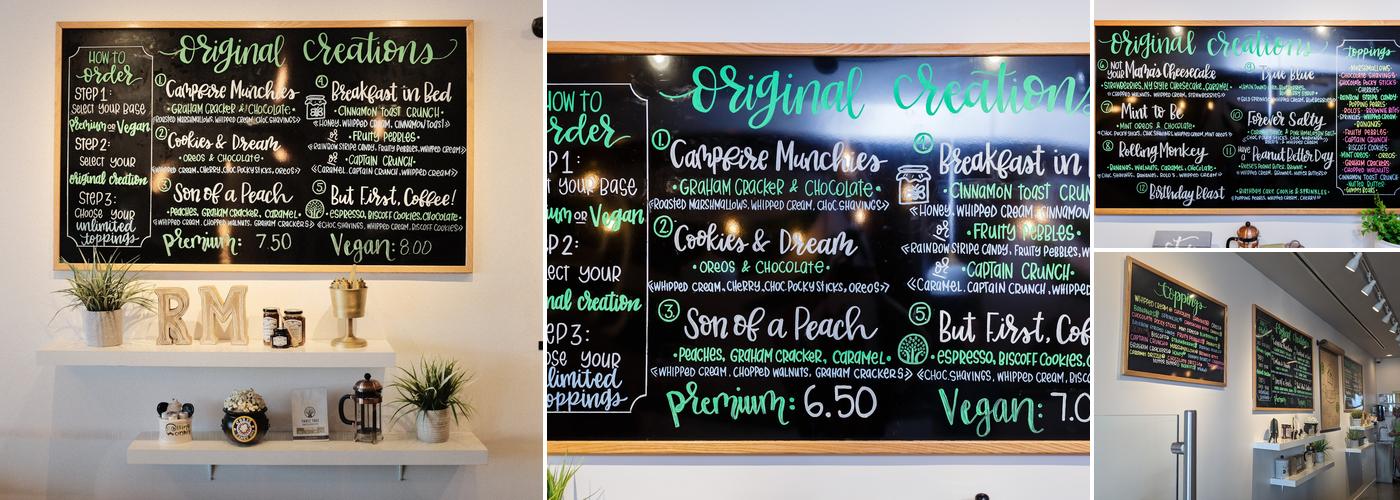 original creations
HOW TO
order
STEP 1:
Select your Base
Premium or Vegan
STEP 2:
Select your
original creation
STEP 3:
Choose your
unlimited
toppings
① Campfire Munchies
• GRAHAM CRACKER & CHOCOLATE •
<Roasted Marshmallows, Whipped Cream, Choc Shavings>
② Cookies & Dream
• OREOS & CHOCOLATE •
<Whipped Cream, Cherry, Choc Pocky Sticks, Oreos>
③ Son of a Peach
• PEACHES, GRAHAM CRACKER, CARAMEL •
<Whipped Cream, Chopped Walnuts, Graham Crackers>
④ Breakfast in Bed
• CINNAMON TOAST CRUNCH •
<Honey, Whipped Cream, Cinnamon Toast>
or
• FRUITY PEBBLES •
<Rainbow Stripe Candy, Fruity Pebbles, Whipped Cream>
or
• CAPTAIN CRUNCH •
<Caramel, Captain Crunch, Whipped Cream>
⑤ But First, Coffee!
• ESPRESSO, BISCOFF COOKIES, CHOCOLATE •
<Choc Shavings, Whipped Cream, Biscoff Cookies>
premium: 7.50
Vegan: 8.00
RM
original creations
HOW TO
rder
P 1:
t your Base
um or Vegan
P 2:
lect your
nal creation
EP 3:
ose your
limited
oppings
① Campfire Munchies
• GRAHAM CRACKER & CHOCOLATE •
<Roasted Marshmallows, Whipped Cream, Choc Shavings>
② Cookies & Dream
• OREOS & CHOCOLATE •
<Whipped Cream, Cherry, Choc Pocky Sticks, Oreos>
③ Son of a Peach
• PEACHES, GRAHAM CRACKER, CARAMEL •
<Whipped Cream, Chopped Walnuts, Graham Crackers>
④ Breakfast in
• CINNAMON TOAST CRUN
<Honey, Whipped Cream, Cinnamon
or
• FRUITY PEBBLES •
<Rainbow Stripe Candy, Fruity Pebbles, W
or
• CAPTAIN CRUNCH •
<Caramel, Captain Crunch, Whipped
⑤ But First, Cof
• ESPRESSO, BISCOFF COOKIES, C
<Choc Shavings, Whipped Cream, Bisc
premium: 6.50
Vegan: 7.0
original creations
⑥ NOT your Mama's Cheesecake
• STRAWBERRIES, NY STYLE CHEESECAKE, CARAMEL •
<Chopped Walnuts, Whipped Cream, Strawberries>
⑦ Mint to Be
• MINT OREOS & CHOCOLATE •
⑧ Rolling Monkey
• BANANAS, WALNUTS, CARAMEL, CHOCOLATE •
⑨ True Blue
⑩ Forever Salty
⑪ Have a Peanut Butter Day
⑫ Birthday Blast
• BIRTHDAY CAKE COOKIE & SPRINKLES •
<Popping Pearls, Whipped Cream, Cherry>
toppings
• MARSHMALLOWS •
CHOCOLATE SHAVINGS
CHOCOLATE POCKY STICKS
RAINBOW STRIPE CANDY
POPPING PEARLS
ROLO'S • BROWNIE BITS
• BANANAS •
• FRUITY PEBBLES •
CAPTAIN CRUNCH
BISCOFF COOKIES
MINT OREOS • OREOS
GRAHAM CRACKERS
CHOPPED WALNUTS
CINNAMON TOAST CRUNCH
• NUTTER BUTTER •
• GUMMY BEARS •
toppings
original creations